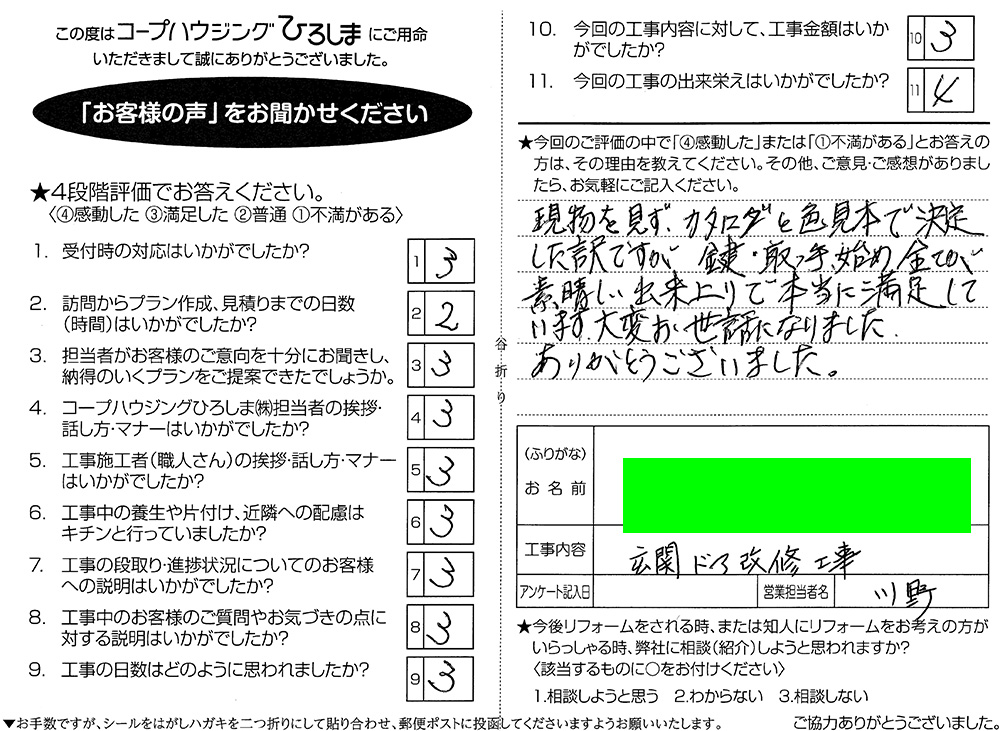 この度はコープハウジングひろしまにご用命
いただきまして誠にありがとうございました。
「お客様の声」をお聞かせください
★4段階評価でお答えください。
〈④感動した ③満足した ②普通 ①不満がある〉
1. 受付時の対応はいかがでしたか?
1 3
2. 訪問からプラン作成、見積りまでの日数
(時間)はいかがでしたか?
2 2
3. 担当者がお客様のご意向を十分にお聞きし、
納得のいくプランをご提案できたでしょうか。
3 3
4. コープハウジングひろしま㈱担当者の挨拶・
話し方・マナーはいかがでしたか?
4 3
5. 工事施工者(職人さん)の挨拶・話し方・マナー
はいかがでしたか?
5 3
6. 工事中の養生や片付け、近隣への配慮は
キチンと行っていましたか?
6 3
7. 工事の段取り・進捗状況についてのお客様
への説明はいかがでしたか?
7 3
8. 工事中のお客様のご質問やお気づきの点に
対する説明はいかがでしたか?
8 3
9. 工事の日数はどのように思われましたか?
9 3
谷折り
10. 今回の工事内容に対して、工事金額はいか
がでしたか?
10 3
11. 今回の工事の出来栄えはいかがでしたか?
11 4
★今回のご評価の中で「④感動した」または「①不満がある」とお答えの
方は、その理由を教えてください。その他、ご意見・ご感想がありまし
たら、お気軽にご記入ください。
現物を見ず、カタログと色見本で決定
した訳ですが 鍵・取っ手、始め全てが、
素晴しい出来上りで本当に満足して
います。大変お世話になりました.
ありがとうございました。
(ふりがな)
お名前
工事内容
玄関ドア改修工事
アンケート記入日
営業担当者名
川野
★今後リフォームをされる時、または知人にリフォームをお考えの方が
いらっしゃる時、弊社に相談(紹介)しようと思われますか?
〈該当するものに○をお付けください〉
1.相談しようと思う 2.わからない 3.相談しない
▼お手数ですが、シールをはがしハガキを二つ折りにして貼り合わせ、郵便ポストに投函してくださいますようお願いいたします。
ご協力ありがとうございました。